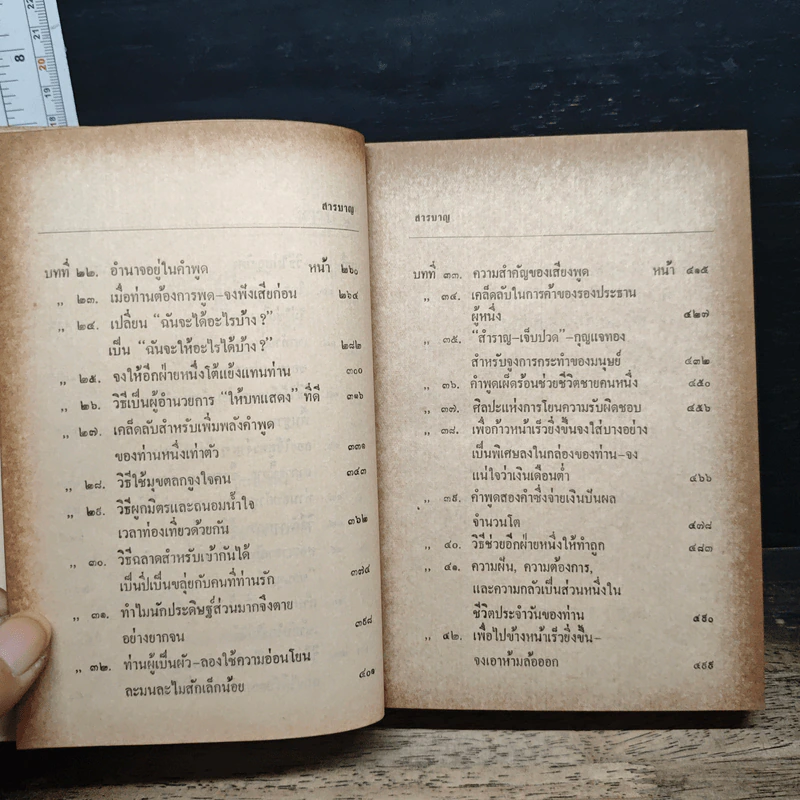 8
22
21
20
19
18
สารบาญ
บทที่ ๒๒. อำนาจอยู่ในคำพูด หน้า ๒๖๐
„ ๒๓. เมื่อท่านต้องการพูด–จงฟังเสียก่อน ๒๖๔
„ ๒๔. เปลี่ยน “ฉันจะได้อะไรบ้าง ?”
เป็น “ฉันจะให้อะไรได้บ้าง ?” ๒๘๒
„ ๒๕. จงให้อีกฝ่ายหนึ่งโต้แย้งแทนท่าน ๓๐๐
„ ๒๖. วิธีเป็นผู้อำนวยการ “ให้บทแสดง” ที่ดี ๓๑๖
„ ๒๗. เคล็ดลับสำหรับเพิ่มพลังคำพูด
ของท่านหนึ่งเท่าตัว ๓๓๑
„ ๒๘. วิธีใช้มุขตลกจูงใจคน ๓๔๓
„ ๒๙. วิธีผูกมิตรและถนอมน้ำใจ
เวลาท่องเที่ยวด้วยกัน ๓๖๒
„ ๓๐. วิธีฉลาดสำหรับเข้ากันได้
เป็นปี่เป็นขลุ่ยกับคนที่ท่านรัก ๓๗๔
„ ๓๑. ทำไมนักประดิษฐ์ส่วนมากจึงตาย
อย่างยากจน ๓๙๘
„ ๓๒. ท่านผู้เป็นผัว–ลองใช้ความอ่อนโยน
ละมุนละไมสักเล็กน้อย ๔๐๑
สารบาญ
บทที่ ๓๓. ความสำคัญของเสียงพูด หน้า ๔๑๕
„ ๓๔. เคล็ดลับในการค้าของรองประธาน
ผู้หนึ่ง ๔๒๗
„ ๓๕. “สำราญ–เจ็บปวด”–กุญแจทอง
สำหรับจูงการกระทำของมนุษย์ ๔๓๒
„ ๓๖. คำพูดเผ็ดร้อนช่วยชีวิตชายคนหนึ่ง ๔๕๐
„ ๓๗. ศิลปะแห่งการโยนความรับผิดชอบ ๔๕๖
„ ๓๘. เพื่อก้าวหน้าเร็วยิ่งขึ้นจงใส่บางอย่าง
เป็นพิเศษลงในกล่องของท่าน–จง
แน่ใจว่าเงินเดือนต่ำ ๔๖๖
„ ๓๙. คำพูดสองคำซึ่งจ่ายเงินปันผล
จำนวนโต ๔๗๘
„ ๔๐. วิธีช่วยอีกฝ่ายหนึ่งให้ทำถูก ๔๘๓
„ ๔๑. ความฝัน, ความต้องการ,
และความกลัวเป็นส่วนหนึ่งใน
ชีวิตประจำวันของท่าน ๔๙๐
„ ๔๒. เพื่อไปข้างหน้าเร็วยิ่งขึ้น–
จงเอาห้ามล้อออก ๔๙๙